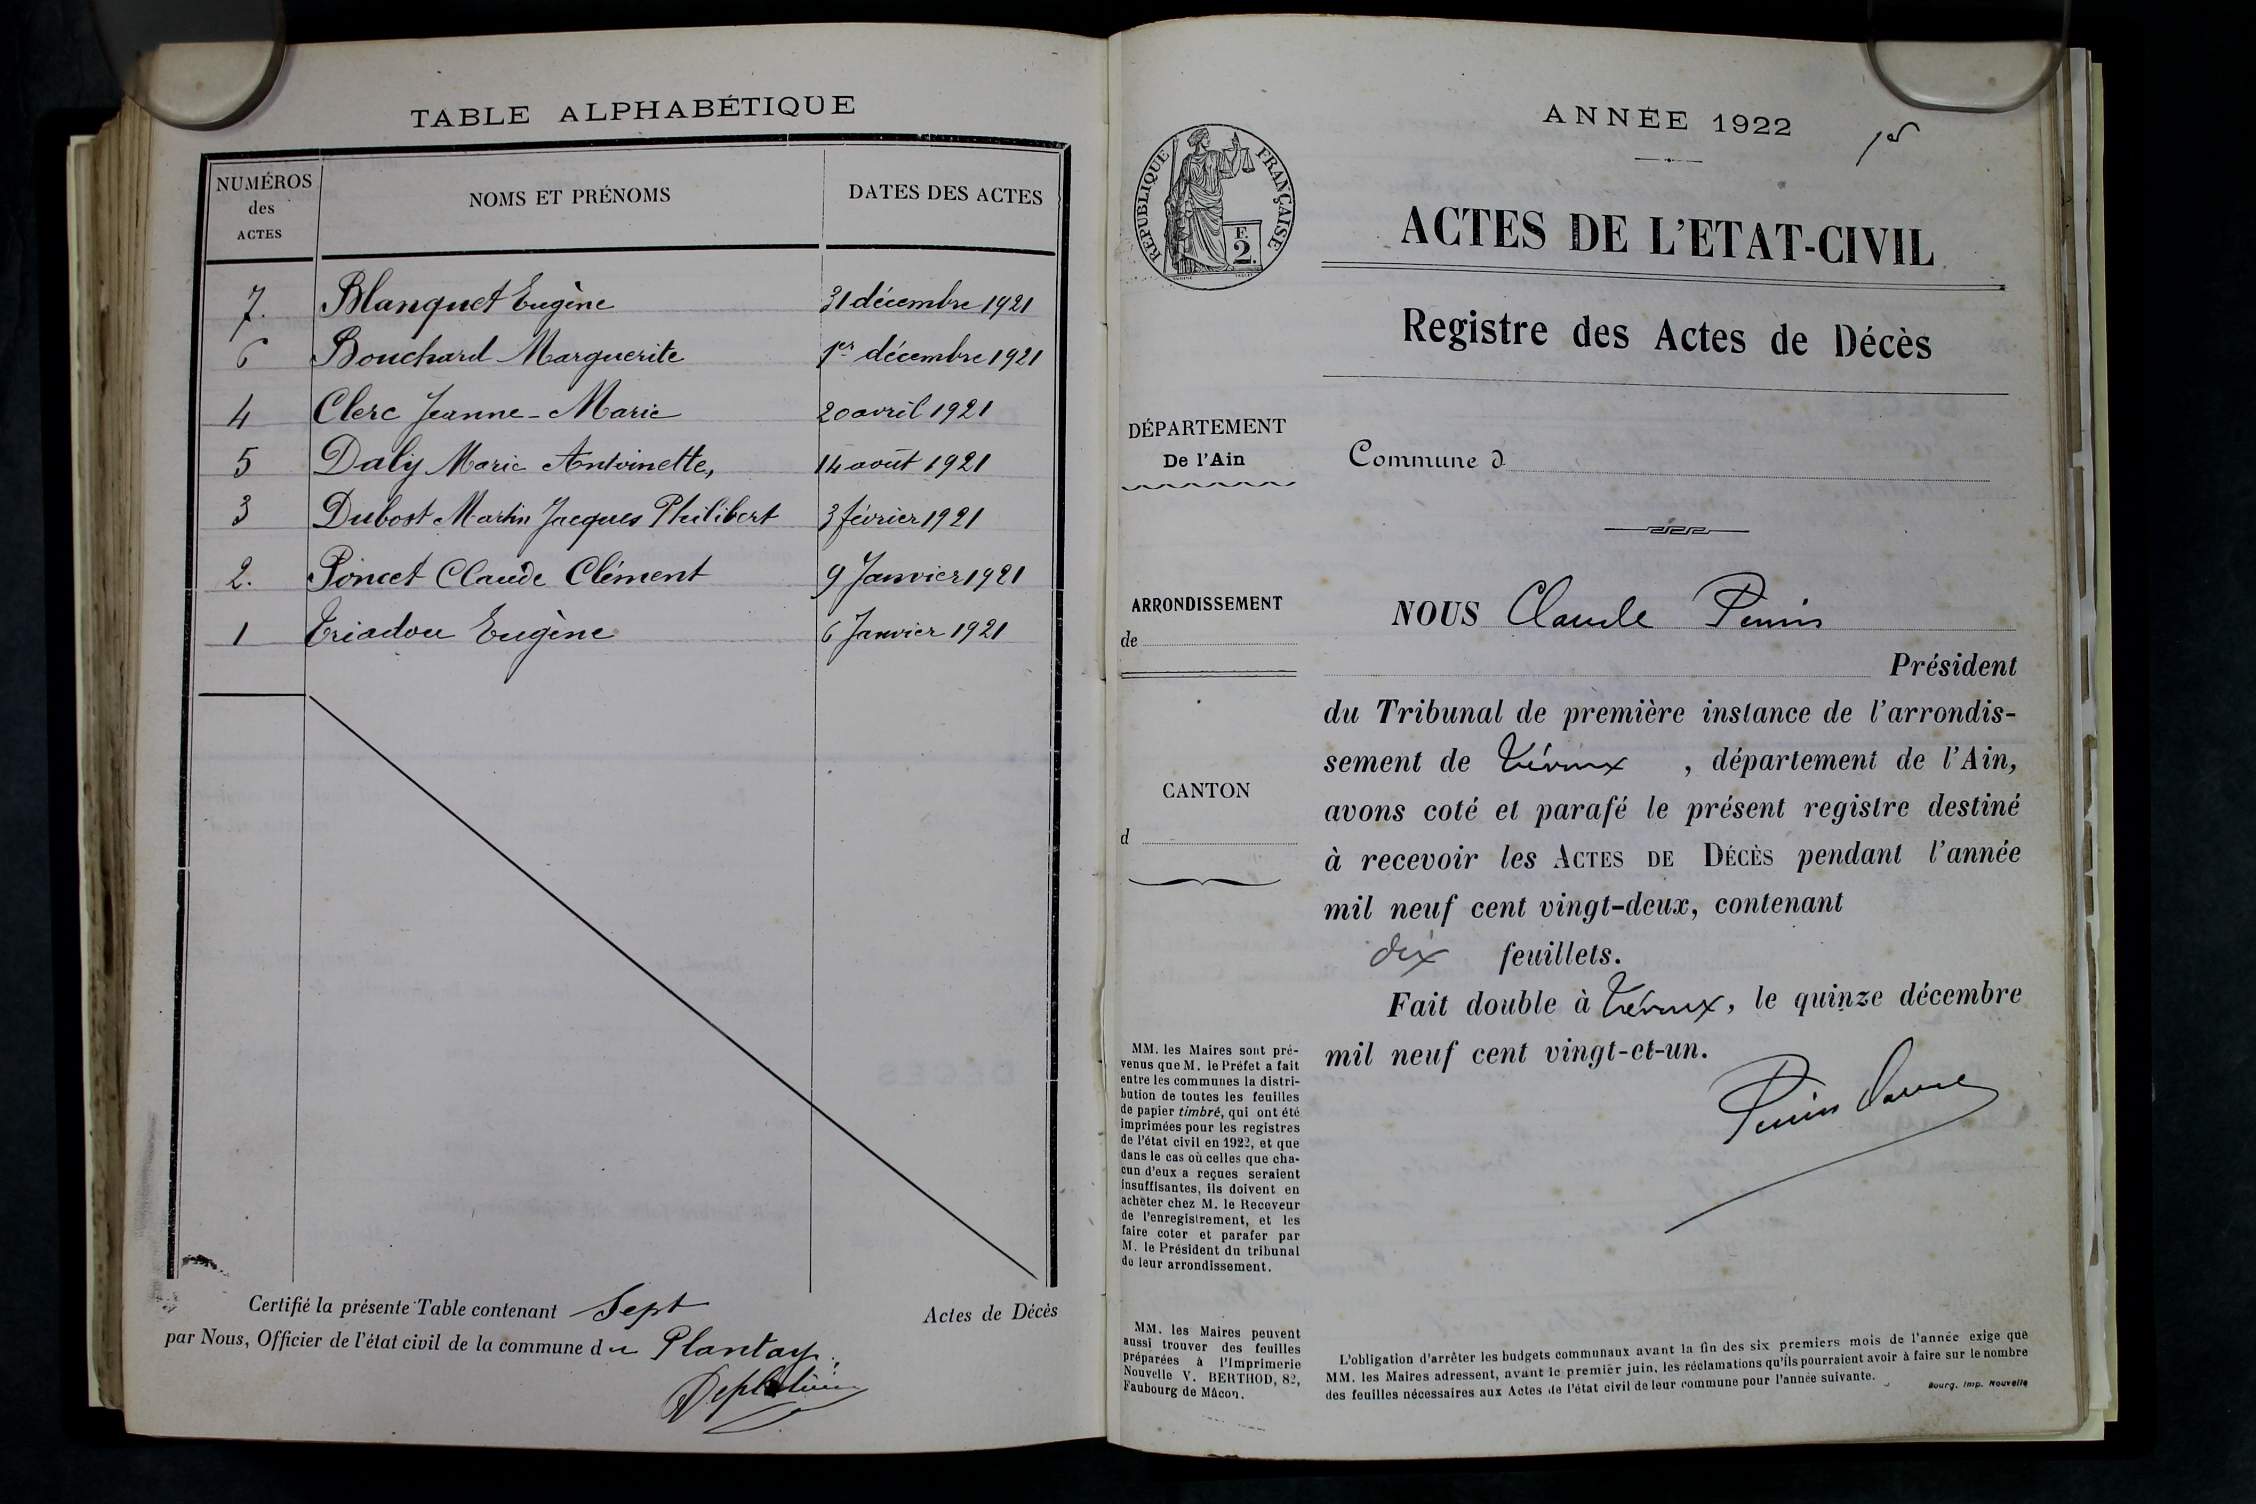 TABLE ALPHABÉTIQUE
NUMÉROS des ACTES NOMS ET PRÉNOMS DATES DES ACTES
7. Blanquet Eugène 31 décembre 1921
6 Bouchard Marguerite 1er décembre 1921
4 Clerc Jeanne-Marie 20 avril 1921
5 Daly Marie Antoinette, 14 août 1921
3 Dubost Martin Jacques Philibert 3 février 1921
2. Poncet Claude Clément 9 Janvier 1921
1 Triadou Eugène 6 Janvier 1921
Certifié la présente Table contenant Sept Actes de Décès
par Nous, Officier de l'état civil de la commune du Plantay.
ANNÉE 1922
RÉPUBLIQUE FRANÇAISE
F.
2.
ACTES DE L'ETAT-CIVIL
Registre des Actes de Décès
DÉPARTEMENT
De l'Ain
Commune d
ARRONDISSEMENT
de
CANTON
d
NOUS Claude
Président
du Tribunal de première instance de l'arrondis-
sement de Trévoux, département de l'Ain,
avons coté et parafé le présent registre destiné
à recevoir les ACTES DE DÉCÈS pendant l'année
mil neuf cent vingt-deux, contenant
dix feuillets.
Fait double à Trévoux, le quinze décembre
mil neuf cent vingt-et-un.
MM. les Maires sont pré-
venus que M. le Préfet a fait
entre les communes la distri-
bution de toutes les feuilles
de papier timbré, qui ont été
imprimées pour les registres
de l'état civil en 1922, et que
dans le cas où celles que cha-
cun d'eux a reçues seraient
insuffisantes, ils doivent en
acheter chez M. le Receveur
de l'enregistrement, et les
faire coter et parafer par
M. le Président du tribunal
de leur arrondissement.
MM. les Maires peuvent
aussi trouver des feuilles
préparées à l'Imprimerie
Nouvelle V. BERTHOD, 82,
Faubourg de Mâcon.
L'obligation d'arrêter les budgets communaux avant la fin des six premiers mois de l'année exige que
MM. les Maires adressent, avant le premier juin, les réclamations qu'ils pourraient avoir à faire sur le nombre
des feuilles nécessaires aux Actes de l'état civil de leur commune pour l'année suivante.
Bourg. Imp. Nouvelle